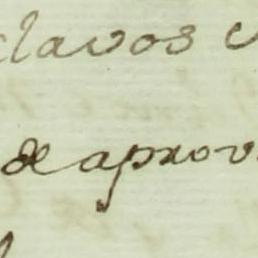 clavos
de aprov